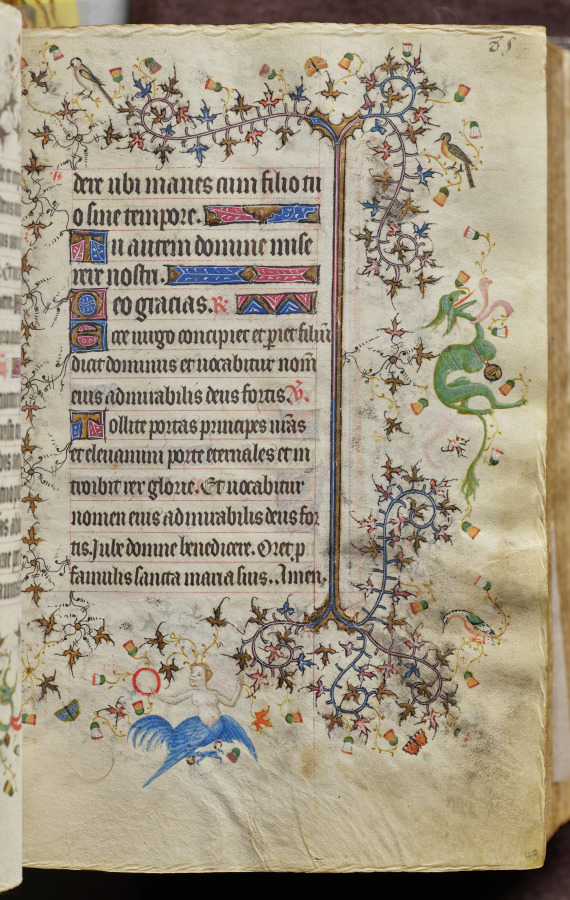 35
dere ubi manes cum filio tu
o sine tempore.
Tu autem domine mise
rere nostri.
Deo gracias. R
Ecce uirgo concipiet et pariet filiū
dicit dominus et uocabitur nom̄
eius admirabilis deus fortis. V.
Tollite portas principes ur̄as
et eleuamini porte eternales et in
troibit rex glorie. Et uocabitur
nomen eius admirabilis deus for
tis. Iube domne benedicere. Oret p
famulis sancta maria suis. Amen.
43